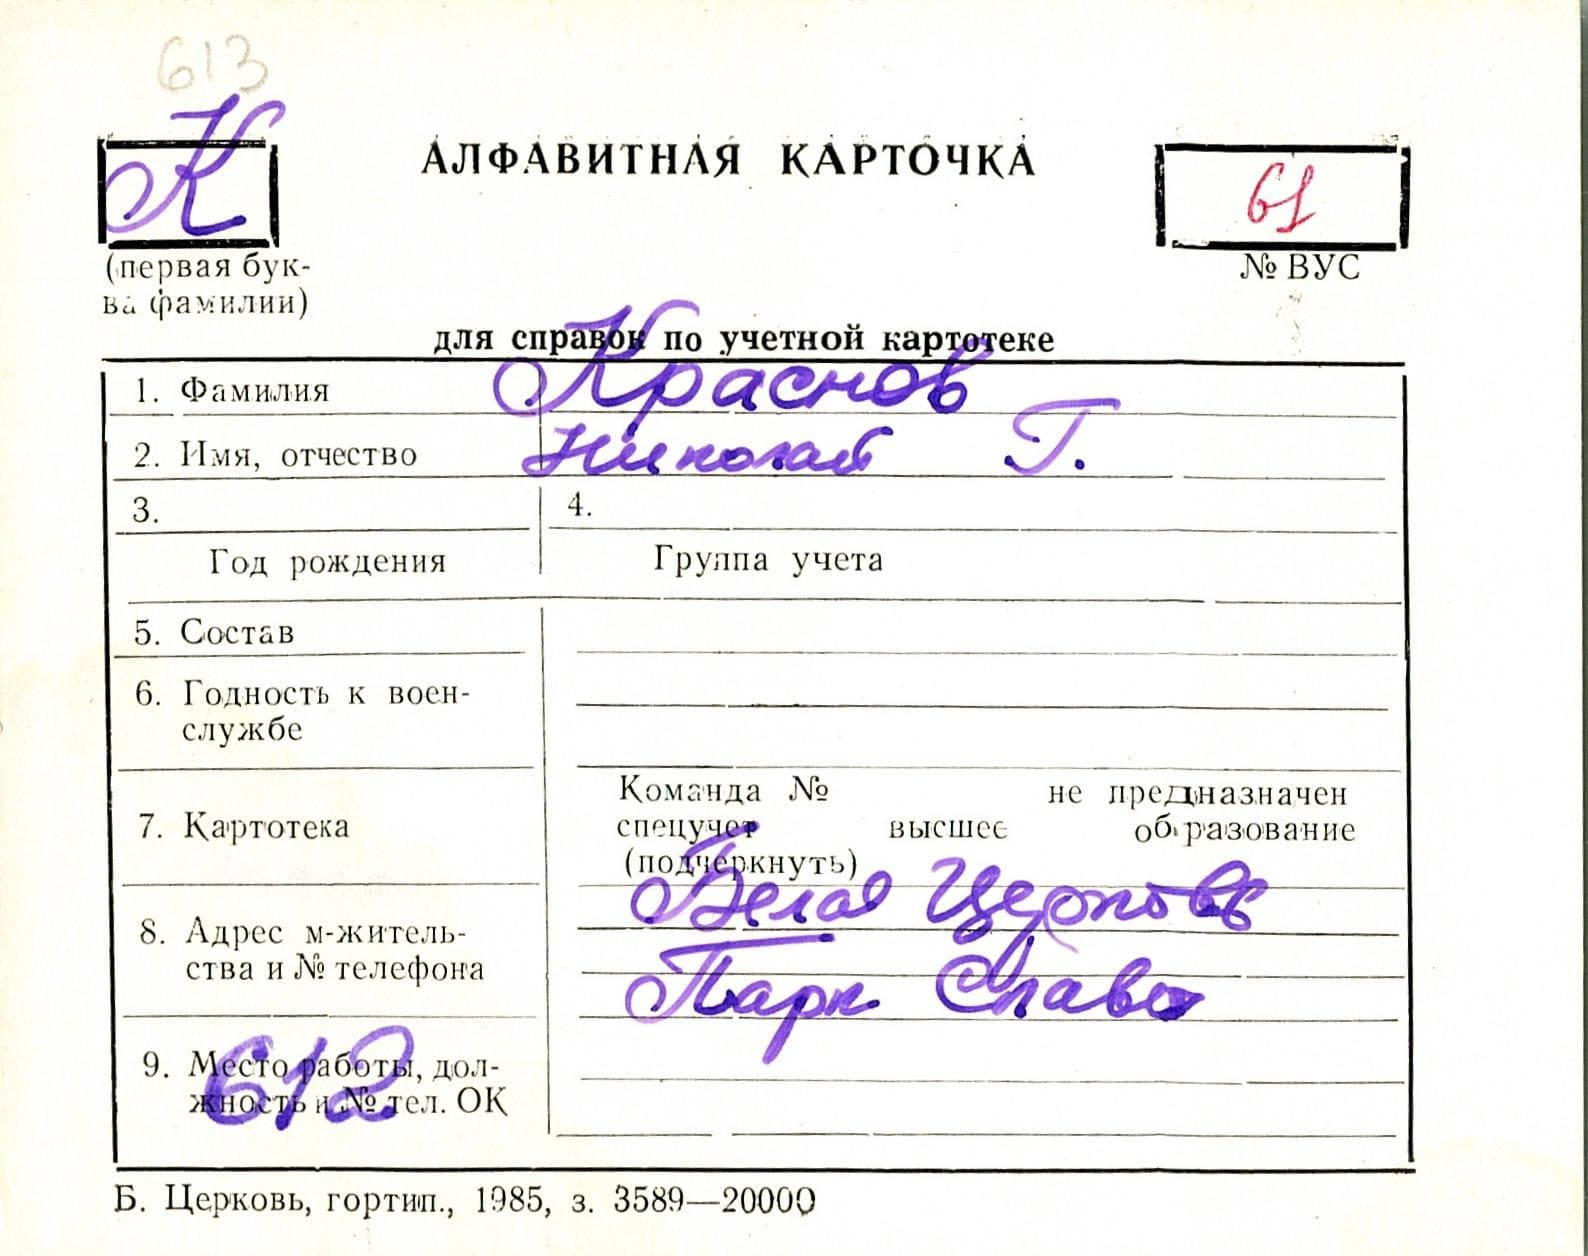 613
К
АЛФАВИТНАЯ КАРТОЧКА
61
(первая бук-
ва фамилии)
№ ВУС
для справок по учетной картотеке
1. Фамилия Краснов
2. Имя, отчество Николай Г.
3. 4.
Год рождения Группа учета
5. Состав
6. Годность к воен-
службе
Команда № не предназначен
7. Картотека спецучет высшее образование
(подчеркнуть)
Белая Церковь
8. Адрес м-житель-
ства и № телефона Парк Славы
612
9. Место работы, дол-
жность и № тел. ОК
Б. Церковь, гортип., 1985, з. 3589—20000